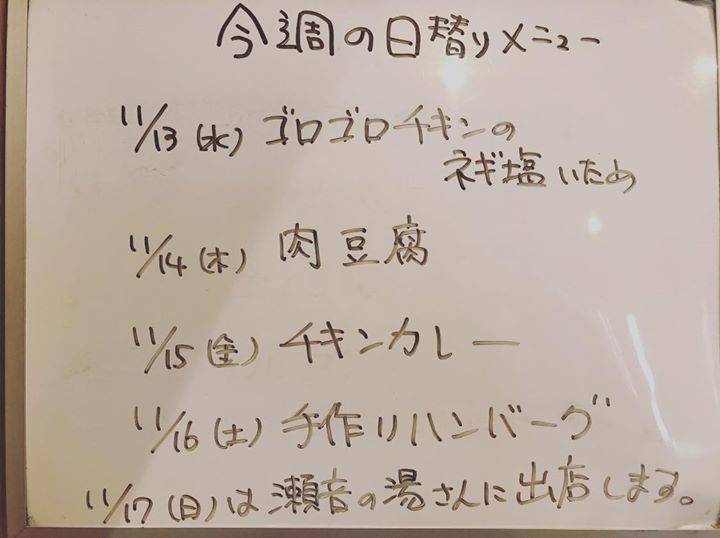 今週の日替りメニュー
11/13(水) ゴロゴロチキンの
ネギ塩いため
11/14(木) 肉豆腐
11/15(金) チキンカレー
11/16(土) 手作りハンバーグ
11/17(日)は瀬音の湯さんに出店します。